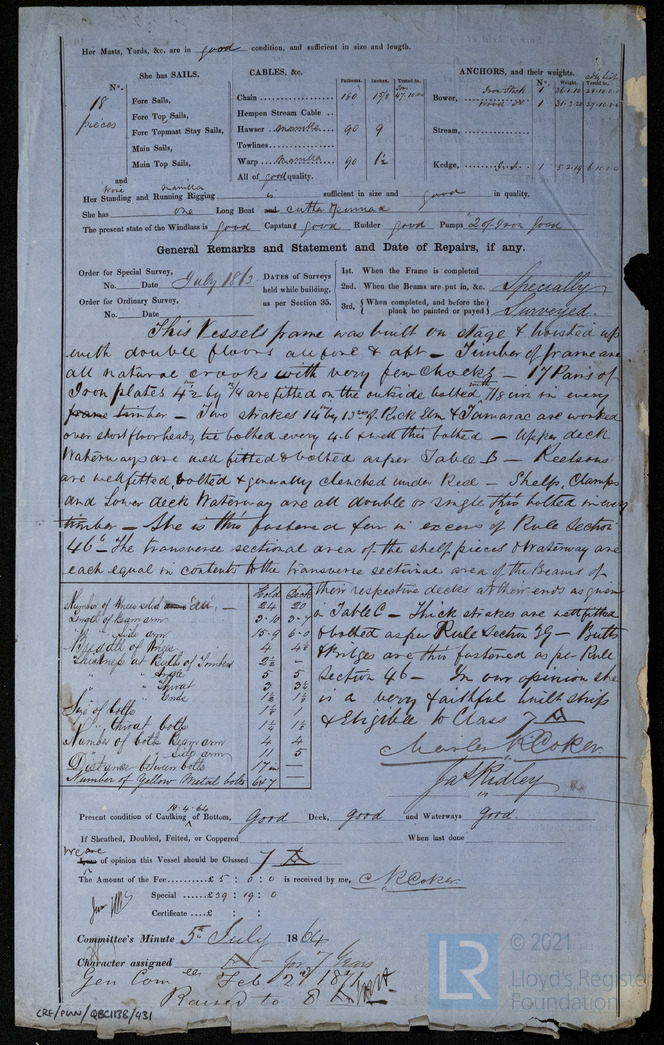 Her Masts, Yards, &c. are in good condition, and sufficient in size and length.
She has SAILS.
CABLES, &c.
Fathoms.
Inches.
Tested to.
ANCHORS, and their weights.
Nº.
Weight.
Tested to.
Nº.
18 pieces
Fore Sails,
Fore Top Sails,
Fore Topmast Stay Sails,
Main Sails,
Main Top Sails,
and
Chain 180 1 5/8 47.10.0.0
Hempen Stream Cable
Hawser manilla 90 9
Towlines
Warp Manilla 90
All of good quality.
Bower, Iron Stock 1 36.1.10
Wood Do 1 31.3.20
Stream,
Kedge, 1 5.2.14
Iron Manilla
Her Standing and Running Rigging is sufficient in size and good in quality.
She has one Long Boat and cutter & Pinnace
The present state of the Windlass is good Capstan good Rudder good Pumps 2 of Iron good
General Remarks and Statement and Date of Repairs, if any.
Order for Special Survey,
No. Date July 1863
Order for Ordinary Survey,
No. Date
DATES of Surveys
held while building,
as per Section 35.
1st. When the Frame is completed
2nd. When the Beams are put in, &c. Specially
3rd, { When completed, and before the plank be painted or payed } Surveyed.
This Vessels frame was built on stage & hoisted up
with double floors all fore & aft – Timber of frame are
all natural crooks with very few chocks – 17 Pairs of
Iron plates 4½ by ¾ are fitted on the outside bolted with 7/8 iron in every
frame timber – Two strakes 14 by 13 in of Rock Elm & Tamarac are worked
over short floorheads, bolted every 4.6 & well thro bolted – Upper deck
Waterways are well fitted & bolted as per Table B – Keelsons
are well fitted, bolted & generally clenched under Keel – Shelfs, Clamps
and Lower deck Waterway are all double or single thro bolted in every
timber – She is thro fastened far in excess of Rule Section
46 – The transverse sectional area of the shelf pieces & Waterway are
each equal in contents to the transverse sectional area of the Beams of
their respective decks at their ends as given
in Table C – Thick strakes are well fitted
& bolted as per Rule Section 39 – Butts
& Bilges are thro fastened as per Rule
Section 46 – In our opinion she
is a very faithful built ship
& Eligible to Class 7 A
Charles R Coker
Jas Ridley
Hold Deck
Number of Knees 24 20
Length of beam arm 3-10 3-7
" Side arm 15-9 6-0
Breadth of Knees 4
Thickness at Butts of Timbers 2½ –
" " Angle 5 5
" " Throat 3 3½
" " Ends 1½ 1½
Size of bolts
" throat bolts
Number of bolts Beam arm 4 4
" " Side arm 5
Distance between bolts 17 in –
Number of Yellow Metal bolts 647
10.4.64
Present condition of Caulking of Bottom, Good Deck, good and Waterways good.
If Sheathed, Doubled, Felted, or Coppered When last done
We are
of opinion this Vessel should be Classed 7 A
The Amount of the Fee £ 5 : 0 : 0 is received by me, C R Coker
Special £ 39 : 19 : 0
Certificate £ : :
Committee's Minute 5th July 1864
Character assigned A for 7 Years
Gen Com ee Feb 2d 1871
Raised to 8 A
CRF/PUN/QBC1138/431
LR
© 2021
Lloyd's Register
Foundation